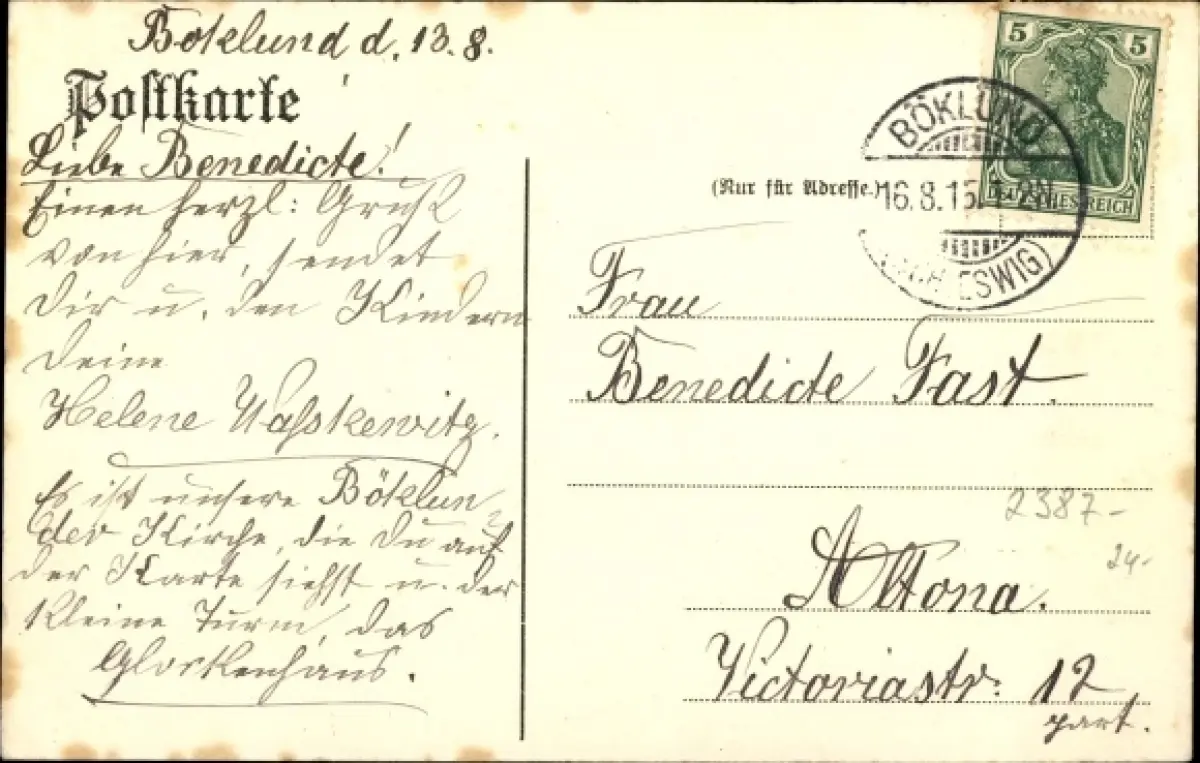 Böklund d. 13.8.
Postkarte
Liebe Benedicte!
Einen herzl: Gruß
von hier, sendet
Dir u. den Kindern
Deine
Helene Waßkewitz.
Es ist unsere Böklun-
der Kirche, die Du auf
der Karte siehst u. der
kleine Turm, das
Glockenhaus.
5 5
BÖKLUND
16.8.15.
(SCHLESWIG)
DEUTSCHES REICH
(Nur für Adresse.)
Frau
Benedicte Fast.
2387-
24.-
Altona.
Victoriastr: 12
part.